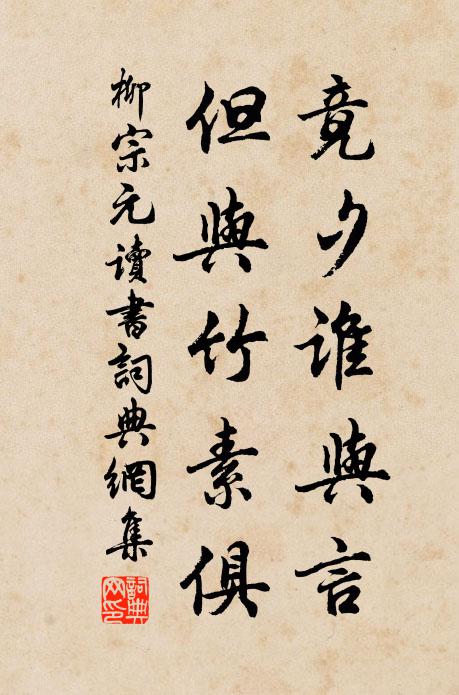 竟夕誰與言
但與竹素俱
柳宗元讀書詞典網集
詞典網印